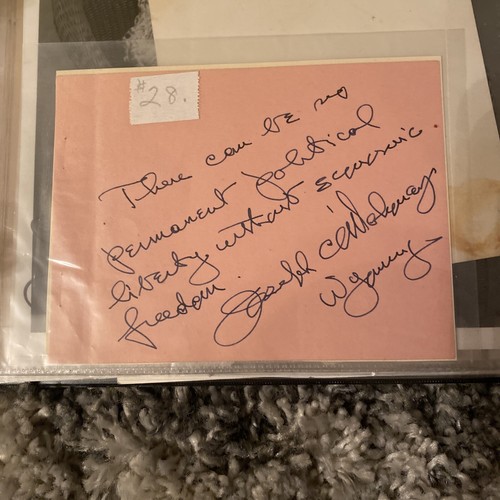 #28.
There can be no
permanent political
liberty without economic
freedom.
Joseph C O'Mahoney
Wyoming